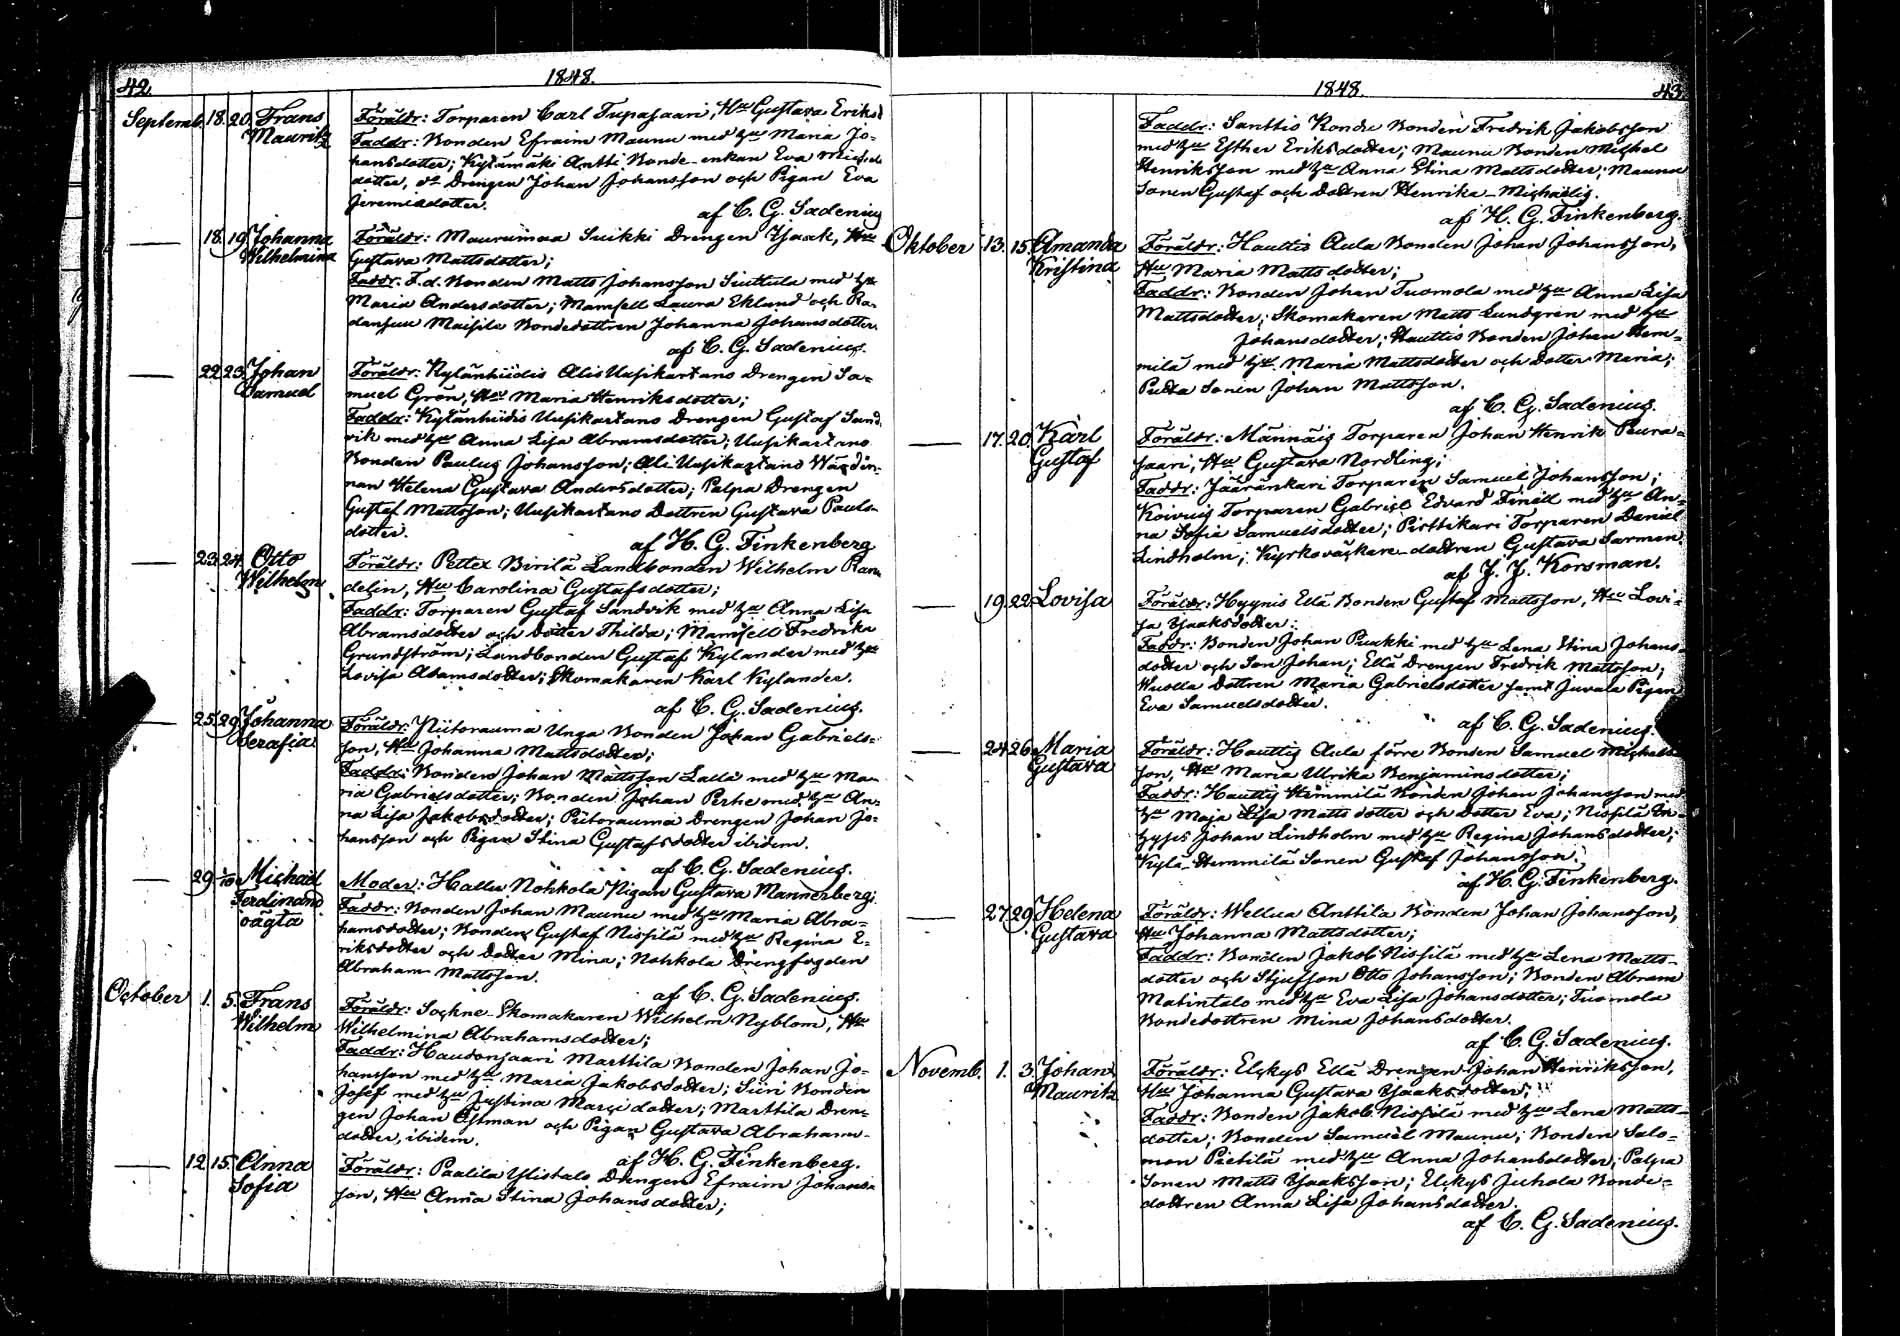 42.
1848.
Septemb. 18. 20. Frans Mauritz
Föräldr: Torparen Carl Tupasaari, Hu Gustava Eriksd
Faddr: Bonden Efraim Maunu med hu Maria Jo-
hansdotter; Kylämäki Antti Bonde-enkan Eva Michels
dotter, dº Drengen Johan Johansson och Pigan Eva
Jeremiedotter.
af C. G. Sadenius
— 18. 19. Johanna Wilhelmina
Föräldr: Maurumaa Suikki Drengen Isaak, Hu
Gustava Mattsdotter;
Faddr: F.d. Bonden Matts Johansson Suttula med hu
Maria Andersdotter; Mamsell Laura Eklund och Ra-
dansuu Maisila Bondedottren Johanna Johansdotter.
af C. G. Sadenius.
— 22. 23. Johan Samuel
Föräldr: Kylänhiidis Alis Uusikartano Drengen Sa-
muel Grön, Hu Maria Henriksdotter;
Faddr: Kylänhiidis Uusikartano Drengen Gustaf Sand
vik med hu Anna Lisa Abramsdotter; Uusikartano
Bonden Paulus Johansson; Ali Uusikartano Wärdin-
nan Helena Gustava Andersdotter; Palpa Drengen
Gustaf Mattsson; Uusikartano Dottren Gustava Pauls-
dotter.
af H. G. Finkenberg
— 23. 24. Otto Wilhelm
Föräldr: Petter Birilä Landbonden Wilhelm Ran
delin, Hu Carolina Gustafsdotter;
Faddr: Torparen Gustaf Sandvik med hu Anna Lisa
Abramsdotter och dotter Thilda; Mamsell Fredrika
Grundström; Landbonden Gustaf Kylander med hu
Lovisa Adamsdotter; Skomakaren Karl Kylander.
af C. G. Sadenius.
— 25. 29. Johanna Serafia
Föräldr: Riitorauma Unga Bonden Johan Gabriels-
son, Hu Johanna Mattsdotter;
Faddr: Bonden Johan Mattsson Lalla med hu Ma-
ria Gabrielsdotter; Bonden Johan Perhe med hu An-
na Lisa Jakobsdotter; Piitorauma Drengen Johan Jo-
hansson och Pigan Stina Gustafsdotter ibidem.
af C. G. Sadenius.
— 29. 1/10 Michael Ferdinand oägta
Moder: Hallu Nohkola Pigan Gustava Mannerberg;
Faddr: Bonden Johan Maunu med hu Maria Abra-
hamsdotter; Bonden Gustaf Nissilä med hu Regina E-
riksdotter och dotter Mina; Nohkola Drengfogden
Abraham Mattsson.
af C. G. Sadenius.
October 1. 5. Frans Wilhelm
Föräldr: Sockne-Skomakaren Wilhelm Nyblom, Hu
Wilhelmina Abrahamsdotter;
Faddr: Haudonsaari Marttila Bonden Johan Jo-
hansson med hu Maria Jakobsdotter; Siiri Bonden
Josef med hu Justina Marcidotter; Marttila Dren-
gen Johan Östman och Pigan Gustava Abrahams-
dotter, ibidem.
af H. G. Finkenberg.
— 12. 15. Anna Sofia
Föräldr: Paalila Ylistalo Drengen Efraim Johans
son, Hu Anna Stina Johansdotter;
1848.
43.
Faddr: Santtio Kondu Bonden Fredrik Jakobsson
med hu Esther Eriksdotter; Maunu Bonden Michel
Henriksson med hu Anna Stina Mattsdotter; Maunu
Sonen Gustaf och dottren Henrika Michaelis.
af H. G. Finkenberg.
Oktober 13. 15. Amanda Kristina
Föräldr: Hauttis Aula Bonden Johan Johansson,
Hu Maria Mattsdotter;
Faddr: Bonden Johan Tuomola med hu Anna Lisa
Mattsdotter; Skomakaren Matts Lundgren med hu
Johansdotter; Hauttis Bonden Johan Hem-
milä med hu Maria Mattsdotter och dotter Maria;
Putta Sonen Johan Mattsson.
af C. G. Sadenius.
— 17. 20. Karl Gustaf
Föräldr: Männäis Torparen Johan Henrik Peura-
saari, Hu Gustava Nordling;
Faddr: Jääränkari Torparen Samuel Johansson;
Koivuis Torparen Gabriel Edvard Finell med hu An-
na Sofia Samuelsdotter; Pirttikari Torparen Daniel
Lindholm; Kyrkoväktare-dottren Gustava Sarmen.
af J. J. Korsman.
— 19. 22. Lovisa
Föräldr: Hyynis Ellä Bonden Gustaf Mattsson, Hu Lovi-
sa Isaaksdotter;
Faddr: Bonden Johan Puukki med hu Lena Stina Johans-
dotter och Son Johan; Ellä Drengen Fredrik Mattsson;
Wuolla Dottren Maria Gabrielsdotter samt Juvala Pigan
Eva Samuelsdotter.
af C. G. Sadenius.
— 24. 26. Maria Gustava
Föräldr: Hauttis Aula förre Bonden Samuel Michels
son, Hu Maria Ulrika Benjaminsdotter;
Faddr: Hauttis Hemmilä Bonden Johan Johansson med
hu Maja Lisa Mattsdotter och dotter Eva; Nissilä In-
hyses Johan Lindholm med hu Regina Johansdotter;
Kylä-Hemmilä Sonen Gustaf Johansson.
af H. G. Finkenberg.
— 27. 29. Helena Gustava
Föräldr: Wellua Anttila Bonden Johan Johansson,
Hu Johanna Mattsdotter;
Faddr: Bonden Jakob Nissilä med hu Lena Matts-
dotter och Styfson Otto Johansson; Bonden Abram
Matintalo med hu Eva Lisa Johansdotter; Tuomola
Bondedottren Mina Johansdotter.
af C. G. Sadenius.
Novemb. 1. 3. Johan Mauritz
Föräldr: Elckys Ellä Drengen Johan Henriksson,
Hu Johanna Gustava Isaaksdotter;
Faddr: Bonden Jakob Nissilä med hu Lena Matts-
dotter; Bonden Samuel Maunu; Bonden Salo-
mon Pietilä med hu Anna Johansdotter; Palpa
Sonen Matts Isaaksson; Elckys Juhola Bonde-
dottren Anna Lisa Johansdotter.
af C. G. Sadenius.